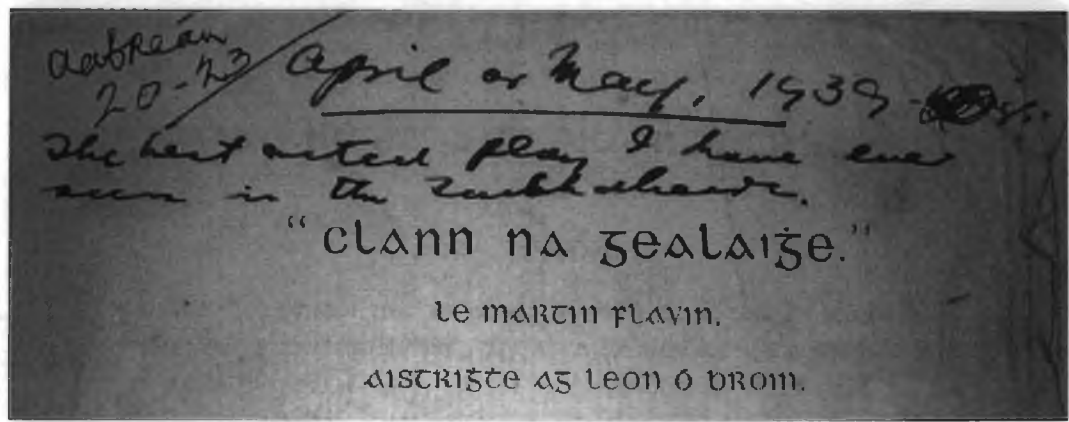 Aabreán
20-23
April or May, 1939
The best acted play I have ever
seen in the Taibhdhearc.
"Clann na Gealaiġe."
le Martin Flavin.
Aistriġte ag Leon Ó Broin.